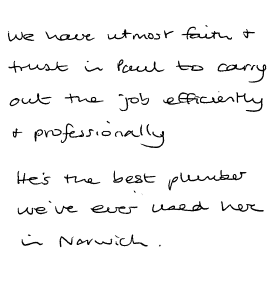 We have utmost faith +
trust in Paul to carry
out the job efficiently
+ professionally
He's the best plumber
we've ever used here
in Norwich.